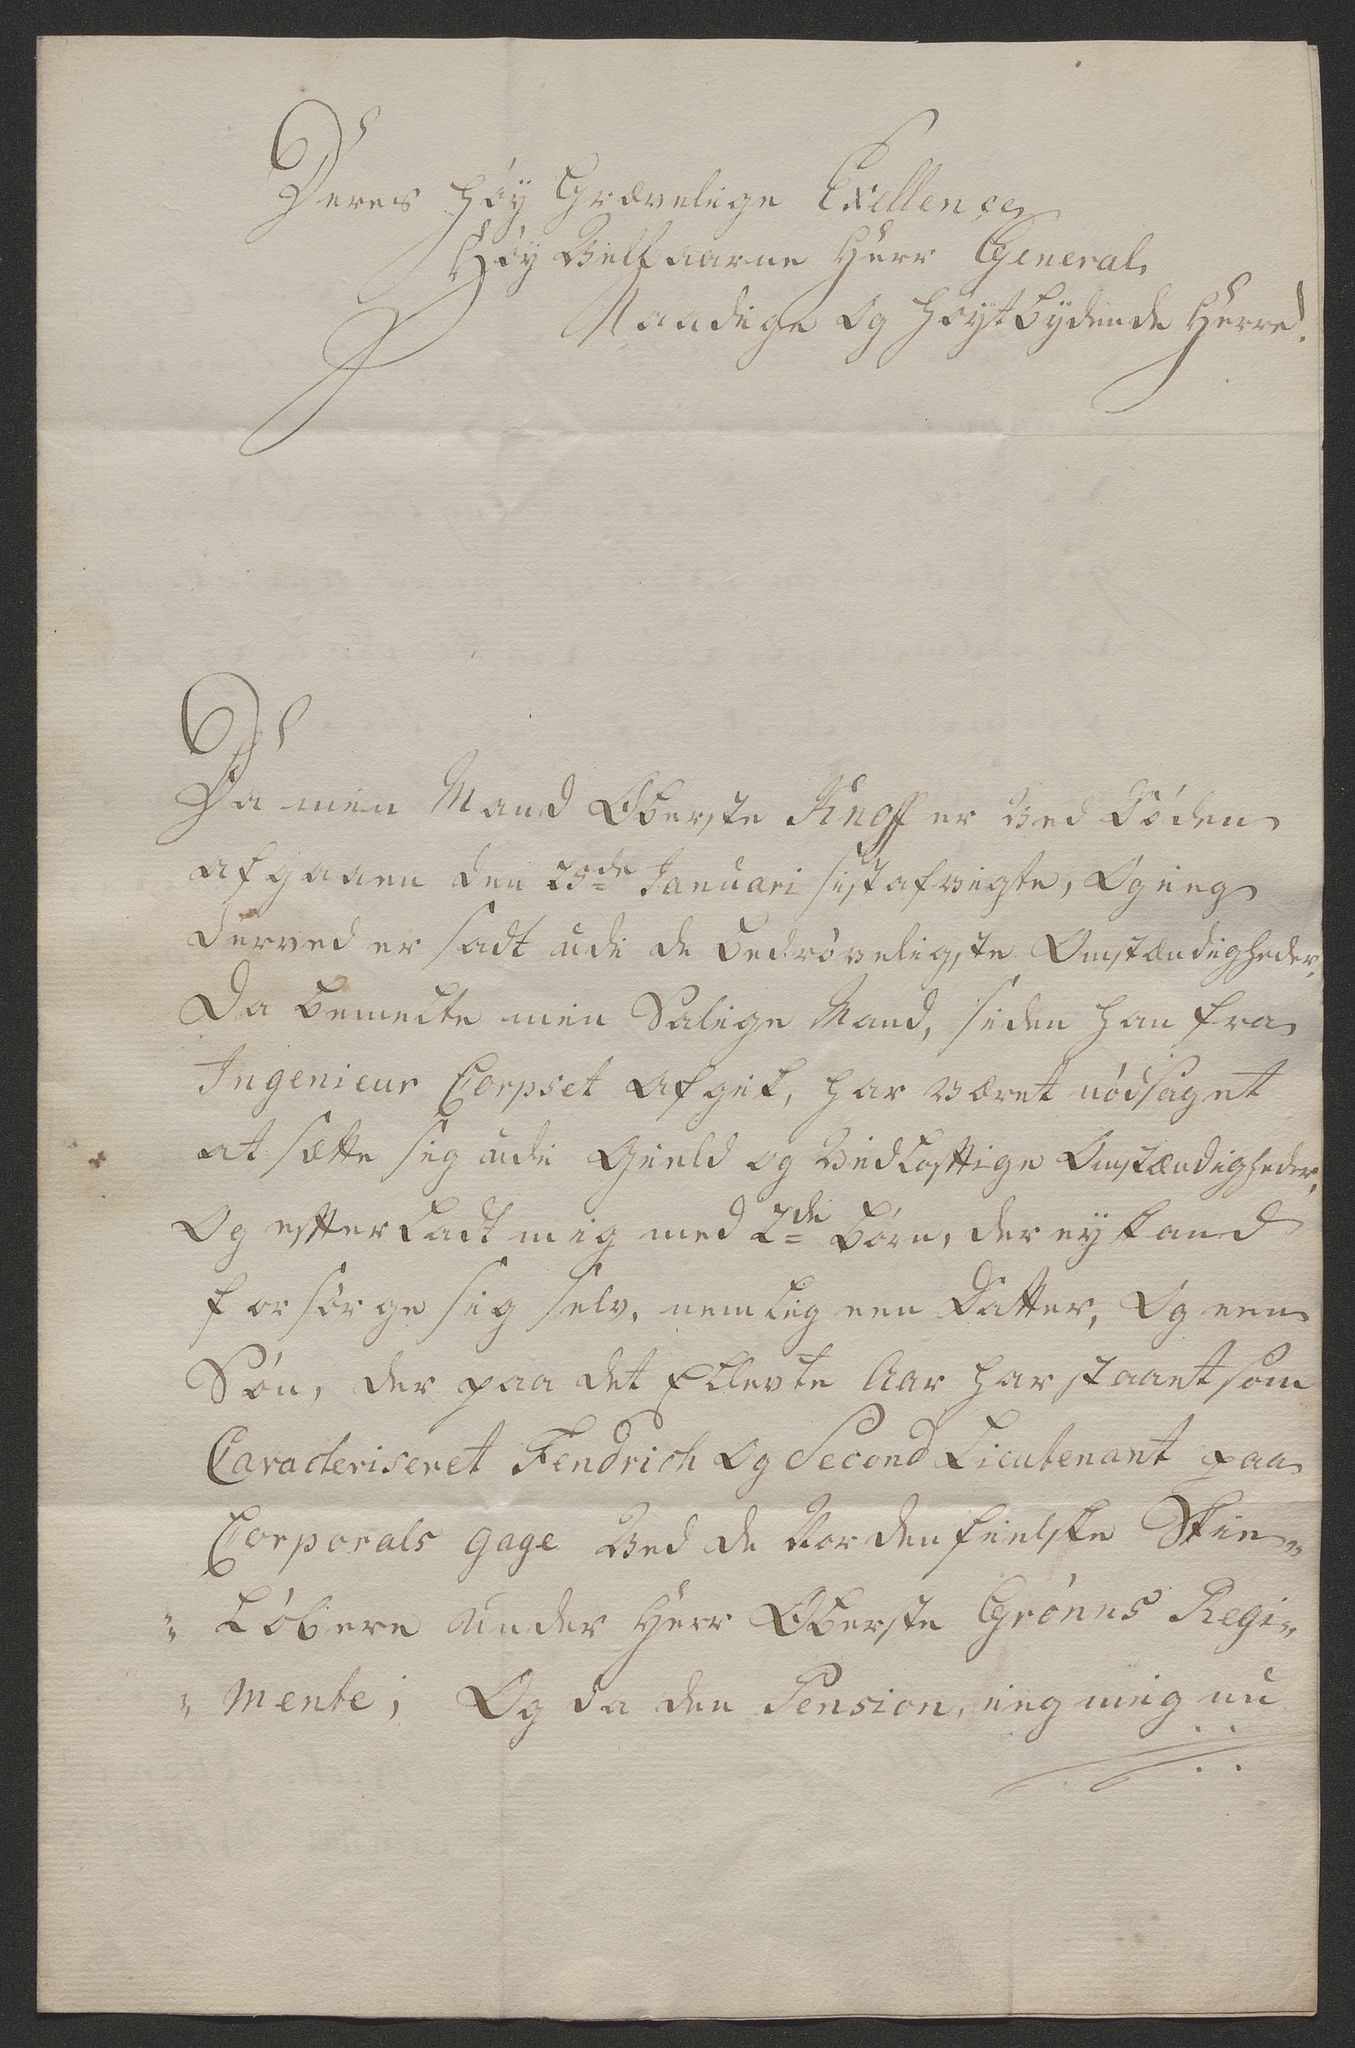 Deres Høy Grævelige Exellence
Høy Velbaarne Herr General
Naadige Og høystbydende Herre!
Da min Mand Oberste Knoff er Ved Døden
afgaaen den 25de Januari sist afvigte, Og ieg
derved er sadt udi de bedrøveligste Omstændigheder,
Da bemelte min Salige Mand, siden han fra
Ingenieur Corpset afgik, har været nødsaget
at sætte sig udi Gield og Vidløftige Omstændigheder,
Og efterladt mig med 2de Børn, der ey kand
forsørge sig selv, nemlig een Datter, Og een
Søn, der paa det Ellevte Aar har staaet som
Caracteriseret Fendrich Og Second Lieutenant paa
Corporals gage Ved de Nordenfielske Skie„
„ Løbere under Herr Oberste Grønns Regi„
„ mente; Og da den Pension, ieg mig nu